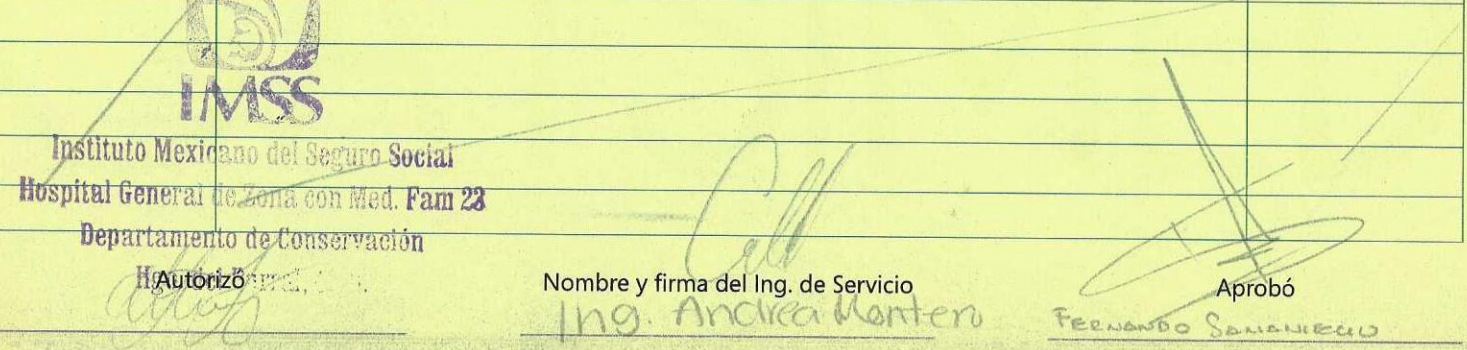 IMSS
Instituto Mexicano del Seguro Social
Hospital General de Zona con Med. Fam 23
Departamento de Conservación
Autorizó
Nombre y firma del Ing. de Servicio
Ing. Andrea Montero
Aprobó
FERNANDO SAMANIEGO